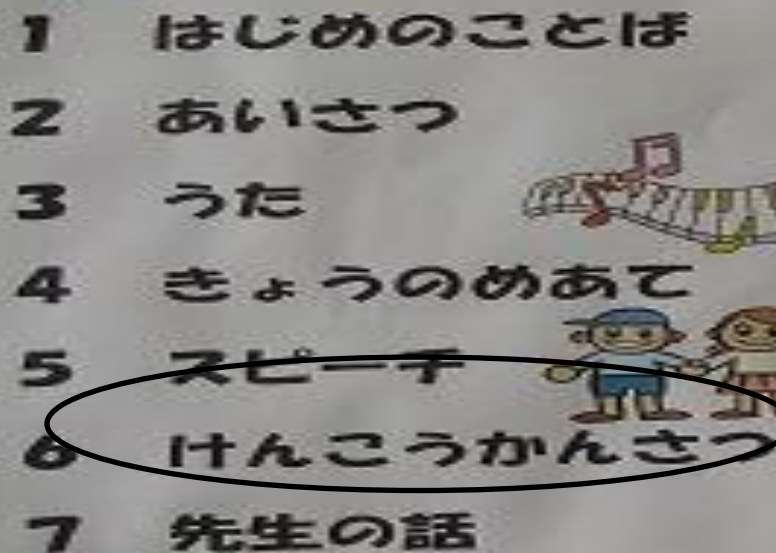 1 はじめのことば
2 あいさつ
3 うた
4 きょうのめあて
5 スピーチ
6 けんこうかんさつ
7 先生の話